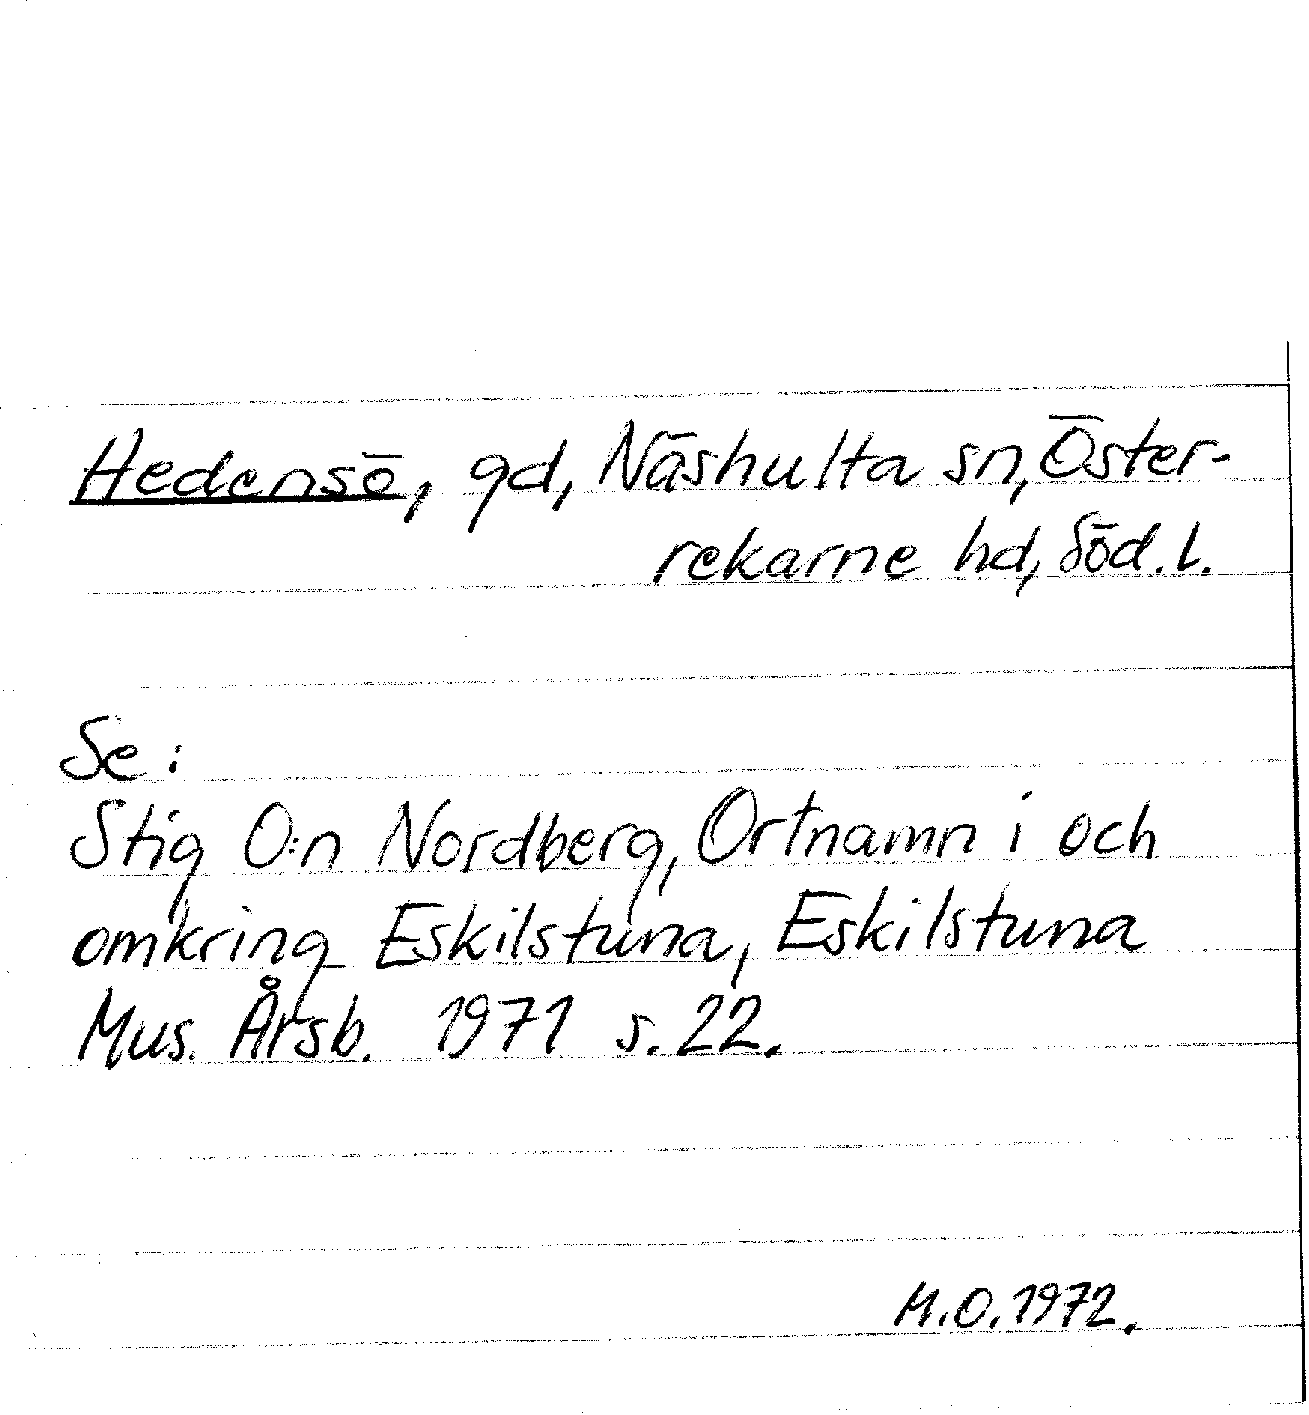 Hedensö, gd, Näshulta sn, Öster-
rekarne hd, Söd. l.
Se:
Stig O:n Nordberg, Ortnamn i och
omkring Eskilstuna, Eskilstuna
Mus. Årsb. 1971 s. 22.
M.O. 1972.